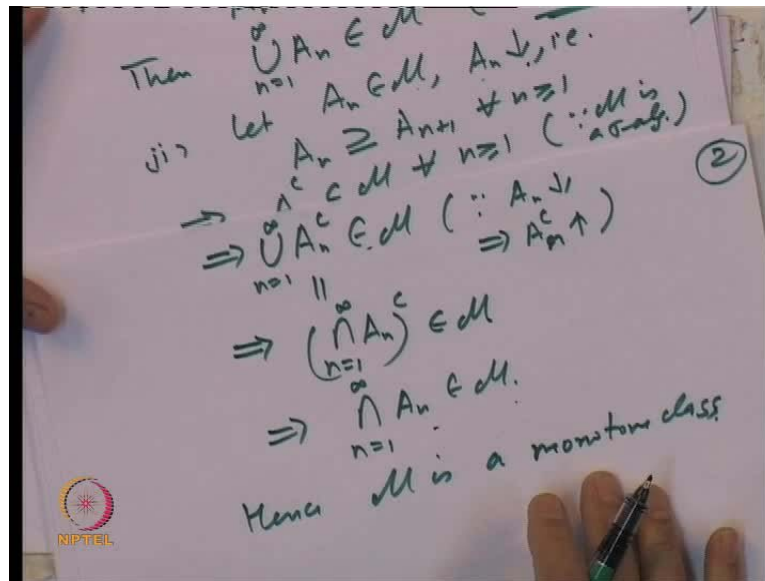 Then ∞⋃n=1 An ∈ M (
ii) Let An ∈ M, An ↓, i.e.
An ⊇ An+1 ∀ n ≥ 1
⇒ Aᶜ ∈ M ∀ n ≥ 1 (∵ M is a σ-alg.)
②
⇒ ∞⋃n=1 Anᶜ ∈ M (∵ An ↓ ⇒ Anᶜ ↑)
||
⇒ (∞⋂n=1 An)ᶜ ∈ M
⇒ ∞⋂n=1 An ∈ M.
Hence M is a monotone class
NPTEL